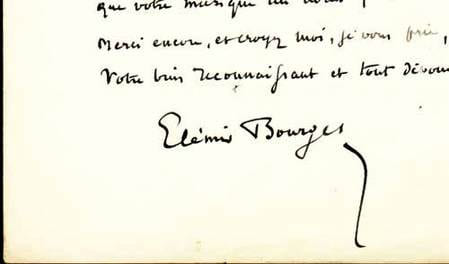 que votre musique
Merci encore, et croyez moi, je vous prie,
Votre bien reconnaissant et tout dévoué
Elémir Bourges